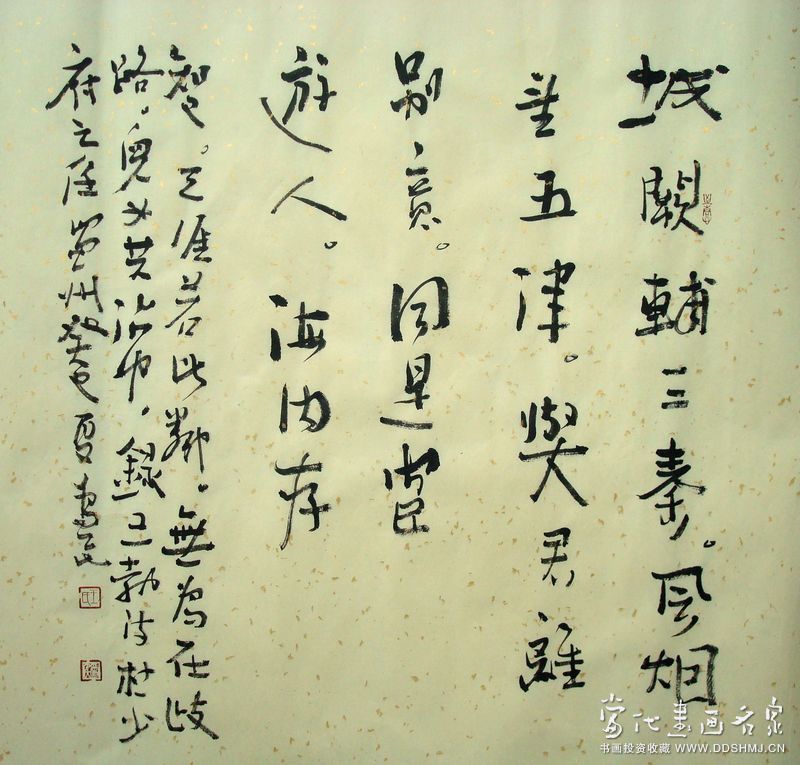 城闕輔三秦。风烟
望五津。與君離
别意。同是宦
遊人。海内存
知己。天涯若比鄰。無為在歧
路，兒女共沾巾，錄王勃詩杜少
府之任蜀州癸巳夏
當代書畫名家
书画投资收藏 WWW.DDSHMJ.CN